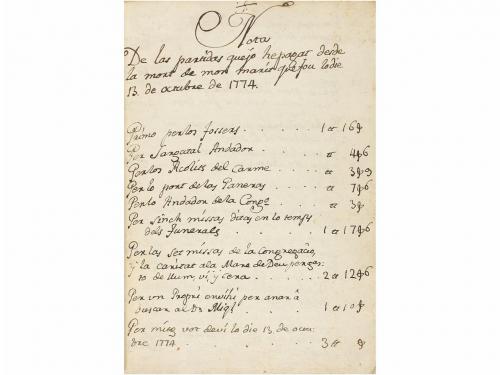 Nota
De las partidas quejo he pagat desde
la mort de mon marit que fou lo die
13. de octubre de 1774.
Primo per los fossers . . . . 1 ₶ 16 ß
Per Sargatal Andador . . . . ₶ 4 ß 6
Per los Acolits del Carme . . . ₶ 3 ß 9
Per lo port de las . . . . ₶ 7 ß 6
Per lo Andador de la Congó . . . ₶ 3 ß
Per Sinch missas ditas en lo temps
dels Funerals . . . . 1 ₶ 17 ß 6
Per las set missas de la Congregacio,
y la caritat a la Mare de Deu per gas
to de llum, vi, y cera . . . . 2 ₶ 12 ß 6
Per un Propri envihi per anar á
buscar al Dr. . . . 1 ₶ 10 ß
Per mitg vot de vi lo die 13, de octu
bre 1774 . . . . 3 ₶ ß